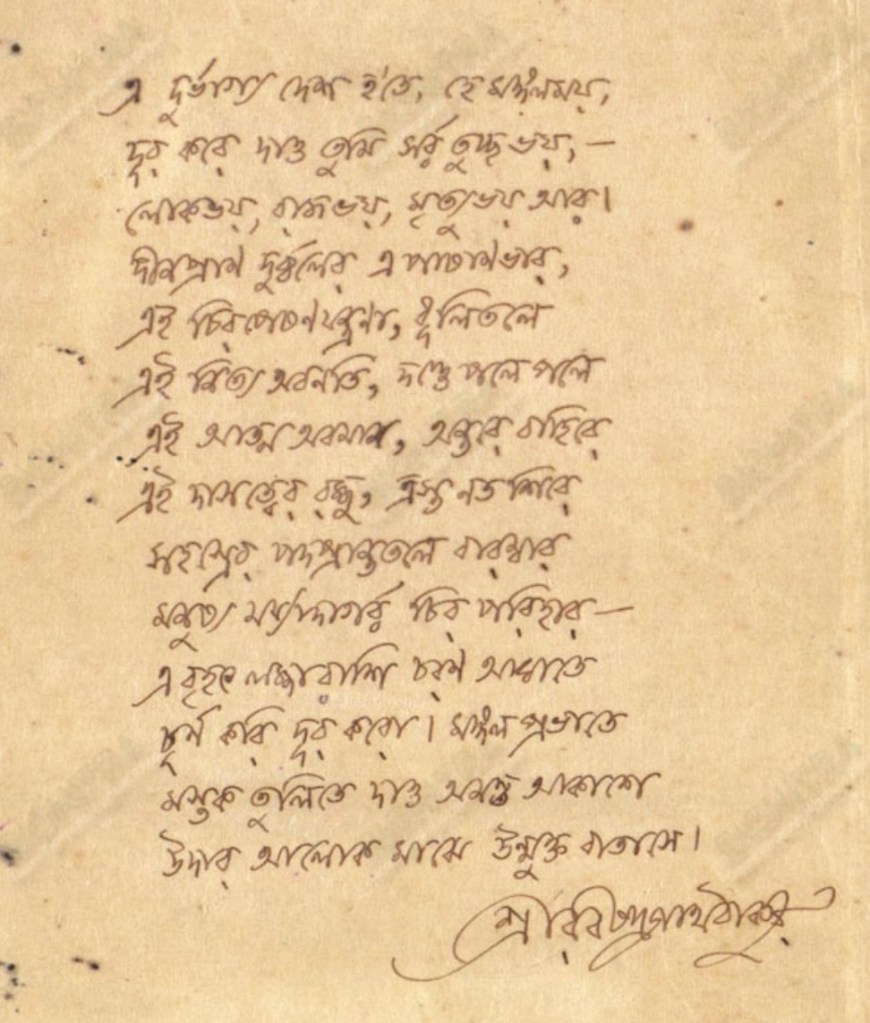 এ দুর্ভাগ্য দেশ হ'তে, হে মঙ্গলময়,
দূর করে দাও তুমি সর্ব্ব তুচ্ছ ভয়,—
লোকভয়, রাজভয়, মৃত্যুভয় আর।
দীনপ্রাণ দুর্ব্বলের এ পাষাণভার,
এই চির পেষণ যন্ত্রণা, ধূলিতলে
এই নিত্য অবনতি, দণ্ডে পলে পলে
এই আত্ম অবমান, অন্তরে বাহিরে
এই দাসত্বের রজ্জু, ত্রস্ত নত শিরে
সহস্রের পদপ্রান্ততলে বারম্বার
মনুষ্য মর্য্যাদাগর্ব্ব চির পরিহার—
এ বৃহৎ লজ্জারাশি চরণ আঘাতে
চূর্ণ করি দূর করো। মঙ্গল প্রভাতে
মস্তক তুলিতে দাও অনন্ত আকাশে
উদার আলোক মাঝে উন্মুক্ত বাতাসে।
শ্রীরবীন্দ্রনাথ ঠাকুর